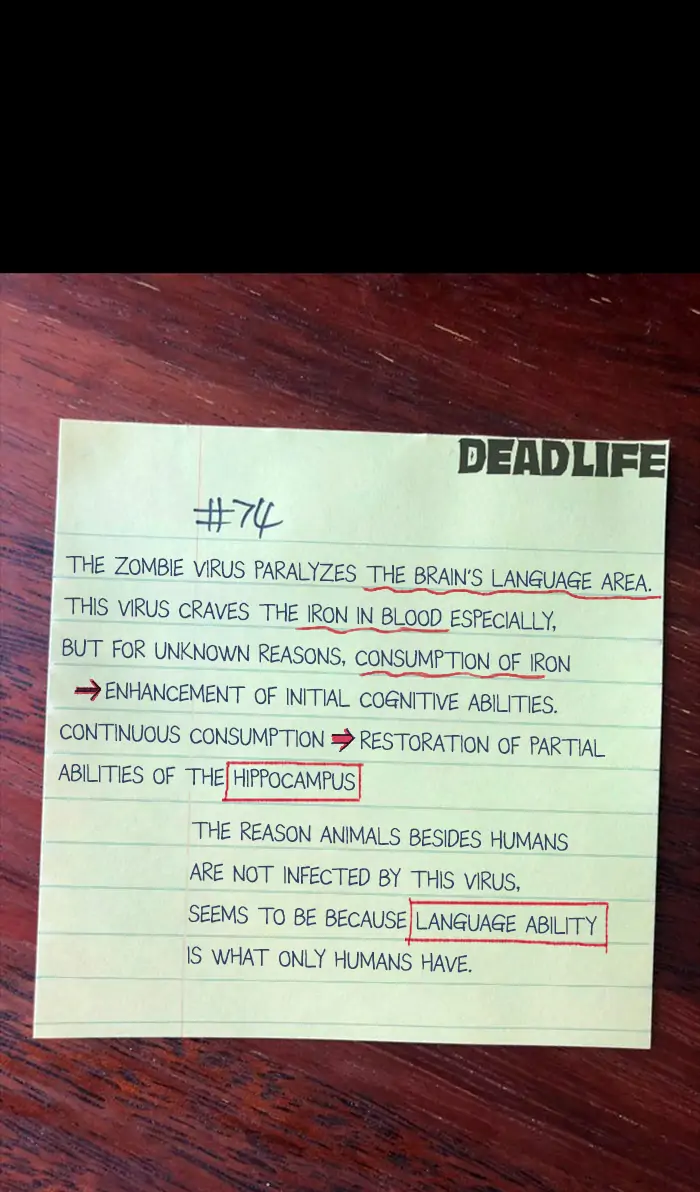 DEADLIFE
#74
THE ZOMBIE VIRUS PARALYZES THE BRAIN'S LANGUAGE AREA.
THIS VIRUS CRAVES THE IRON IN BLOOD ESPECIALLY,
BUT FOR UNKNOWN REASONS, CONSUMPTION OF IRON
➡ ENHANCEMENT OF INITIAL COGNITIVE ABILITIES.
CONTINUOUS CONSUMPTION ➡ RESTORATION OF PARTIAL
ABILITIES OF THE HIPPOCAMPUS
THE REASON ANIMALS BESIDES HUMANS
ARE NOT INFECTED BY THIS VIRUS,
SEEMS TO BE BECAUSE LANGUAGE ABILITY
IS WHAT ONLY HUMANS HAVE.